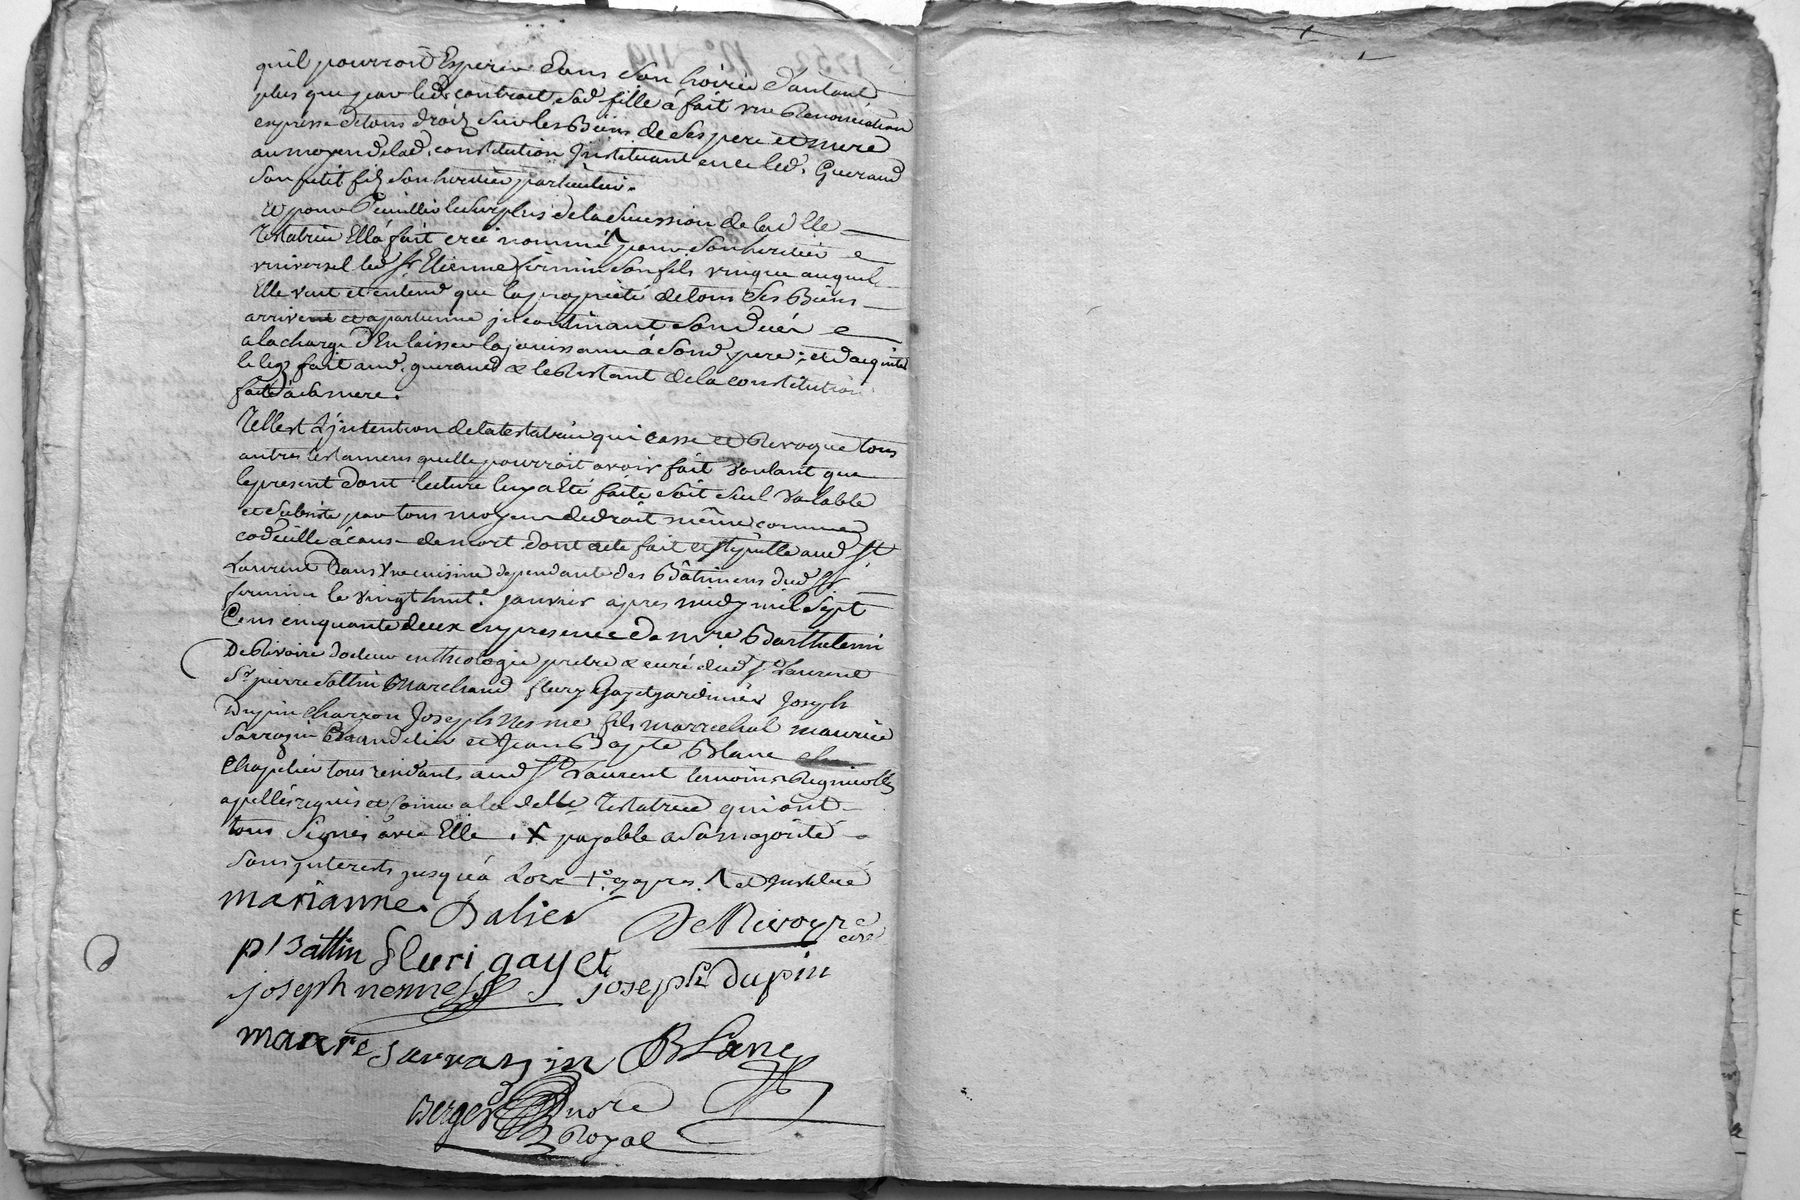 quil pourroit Esperer dans son hoirie d'autant
plus que par led. contract sad. fille à fait une Renonciation
expresse de tous droits sur les Biens de ses pere et mere
au moyen de lad. constitution Instituant en ce led. Gueraud
son petit fils son heritier particulier.
et pour Recueillir le surplus de la succession de lad. dlle
testatrice Ella fait creé nommé ^ pour son heritier
universel led. Sr Etienne firmin son fils unique auquel
Elle veut et entend que la proprieté de tous ses Biens
arrivent et apartienne incontinant son decés
a la charge d'En laisser la jouissance à sond. pere, et d'acquiter
le legs fait aud. gueraud & le Restant de la constitution
faite à sa mere.
Telle est L'intention de la testatrice qui casse et Revoque tous
autres testamens quelle pourroit avoir fait voulant que
le present dont lecture luy a eté faite soit seul valable
et subsiste par tous moyens de droit même comme
codicille à cause de mort dont acte fait et stipullé aud. St
Laurent dans une cuisine dependante des Bâtimens dud. Sr
firmin le vingt huite. janvier apres midy mil sept
Cens cinquante deux en presence de mre Barthelemi
De Rivoire docteur en theologie pretre & curé dud. St Laurent
Sr pierre Battin Marchand fleury Gayet jardinier Joseph
Dupin charron Joseph nesme fils marrechal maurice
Sarrazin et Jean B apte Blanc
Chapelier tous residants aud. St Laurent temoins Regnicolles
apellés requis et connu a lad. dlle Testatrice qui ont
tous signés avec Elle. X payable a sa majorité
sans interests jusqu'à Lors + cy apres. ^ et Institué
marianne. Dalier De Rivoyre curé
p' Battin fleuri gayet
joseph nesme joseph dupin
maure sarrazin Blanc
Berger nore
Royal